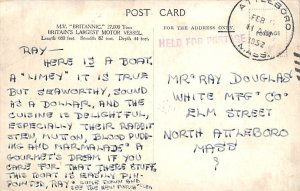 POST CARD
M.V. "BRITANNIC," 27,000 Tons
BRITAIN'S LARGEST MOTOR VESSEL.
Length 683 feet. Breadth 82 feet. Depth 44 feet.
FOR THE ADDRESS ONLY.
HELD FOR POSTAGE
ATTLEBORO
FEB
1952
MASS.
RAY—
HERE IS A BOAT,
A "LIMEY" IT IS TRUE
BUT SEAWORTHY, SOUND
AS A DOLLAR, AND THE
CUISINE IS DELIGHTFUL,
ESPECIALLY THEIR RABBIT
STEW, MUTON, BLOOD PUDD-
ING AND MARMALADE. A
GOURMET'S DREAM IF YOU
CARE FOR THAT THERE STUFF.
THIS BOAT IS EASILY PIN-
POINTED, RAY. COME DOWN AND
SEE THE NEW
MR. RAY DOUGLAS
WHITE MFG CO
ELM STREET
NORTH ATTLEBORO
MASS